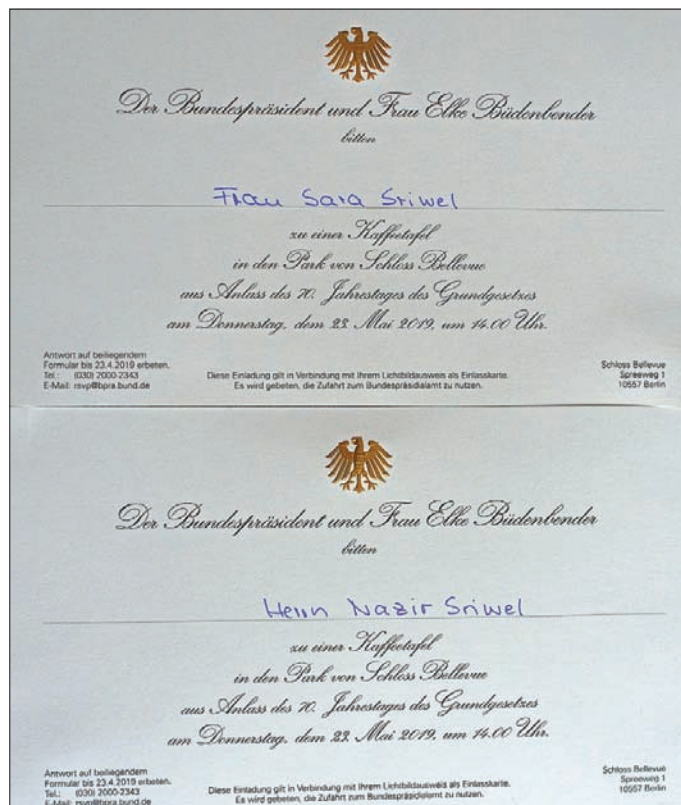 Der Bundespräsident und Frau Elke Büdenbender
bitten
Frau Sara Sriwel
zu einer Kaffeetafel
in den Park von Schloss Bellevue
aus Anlass des 70. Jahrestages des Grundgesetzes
am Donnerstag, dem 23. Mai 2019, um 14.00 Uhr.
Antwort auf beiliegendem
Formular bis 23.4.2019 erbeten.
Tel.: (030) 2000-2343
E-Mail: rsvp@bpra.bund.de
Diese Einladung gilt in Verbindung mit Ihrem Lichtbildausweis als Einlasskarte.
Es wird gebeten, die Zufahrt zum Bundespräsidialamt zu nutzen.
Schloss Bellevue
Spreeweg 1
10557 Berlin
Der Bundespräsident und Frau Elke Büdenbender
bitten
Herrn Nazir Sriwel
zu einer Kaffeetafel
in den Park von Schloss Bellevue
aus Anlass des 70. Jahrestages des Grundgesetzes
am Donnerstag, dem 23. Mai 2019, um 14.00 Uhr.
Antwort auf beiliegendem
Formular bis 23.4.2019 erbeten.
Tel.: (030) 2000-2343
E-Mail: rsvp@bpra.bund.de
Diese Einladung gilt in Verbindung mit Ihrem Lichtbildausweis als Einlasskarte.
Es wird gebeten, die Zufahrt zum Bundespräsidialamt zu nutzen.
Schloss Bellevue
Spreeweg 1
10557 Berlin